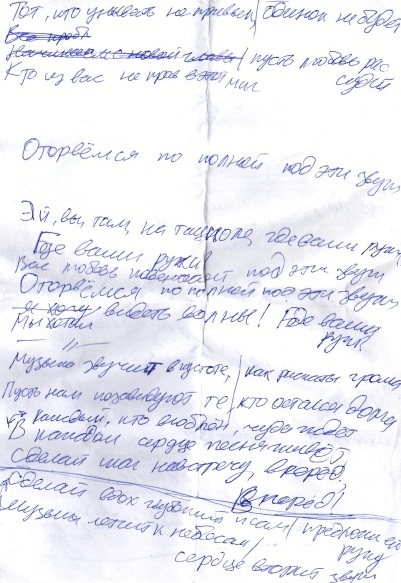 Тот, кто унывать не привык, / одинок не будет
Все проб
Начинаем с новой главы / пусть любовь рас
Кто из вас не прав в этот миг судит
Оторвёмся по полной под эти звуки
Эй, вы, там, на танцполе, где ваши руки
Где ваши руки!
Вас любовь повенчает под эти звуки
Оторвёмся по полной под эти звуки
я хочу видеть волны! Где ваши
Мы хотим руки
— // —
Музыка звучит в пустоте, / как раскаты грома
Пусть нам позавидуют те, кто остался дома
И каждый, кто влюблён, чуда ждёт
В каждом сердце песня живёт,
Сделай шаг навстречу, вперёд,
Вперёд!
Сделай вдох глубокий и сам / предложи ей
Музыка летит к небесам / руку
сердце вторит звуку